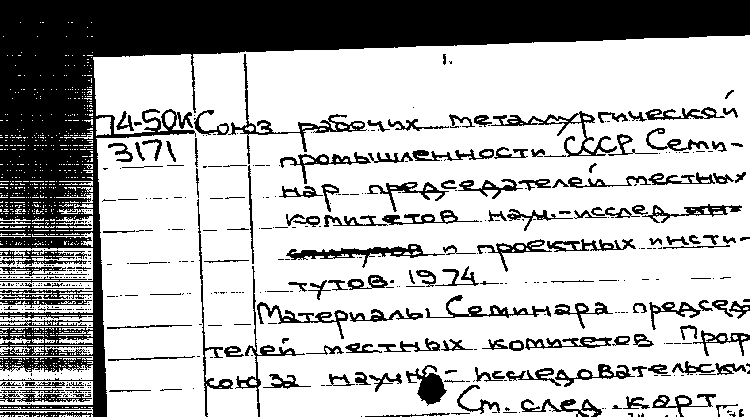 1.
74-50К Союз рабочих металлургической
3171
промышленности СССР. Семи-
нар председателей местных
комитетов науч.-исслед.
и проектных инсти-
тутов. 1974.
Материалы Семинара председа
телей местных комитетов Проф
союза научно-исследовательских
См. след. карт.